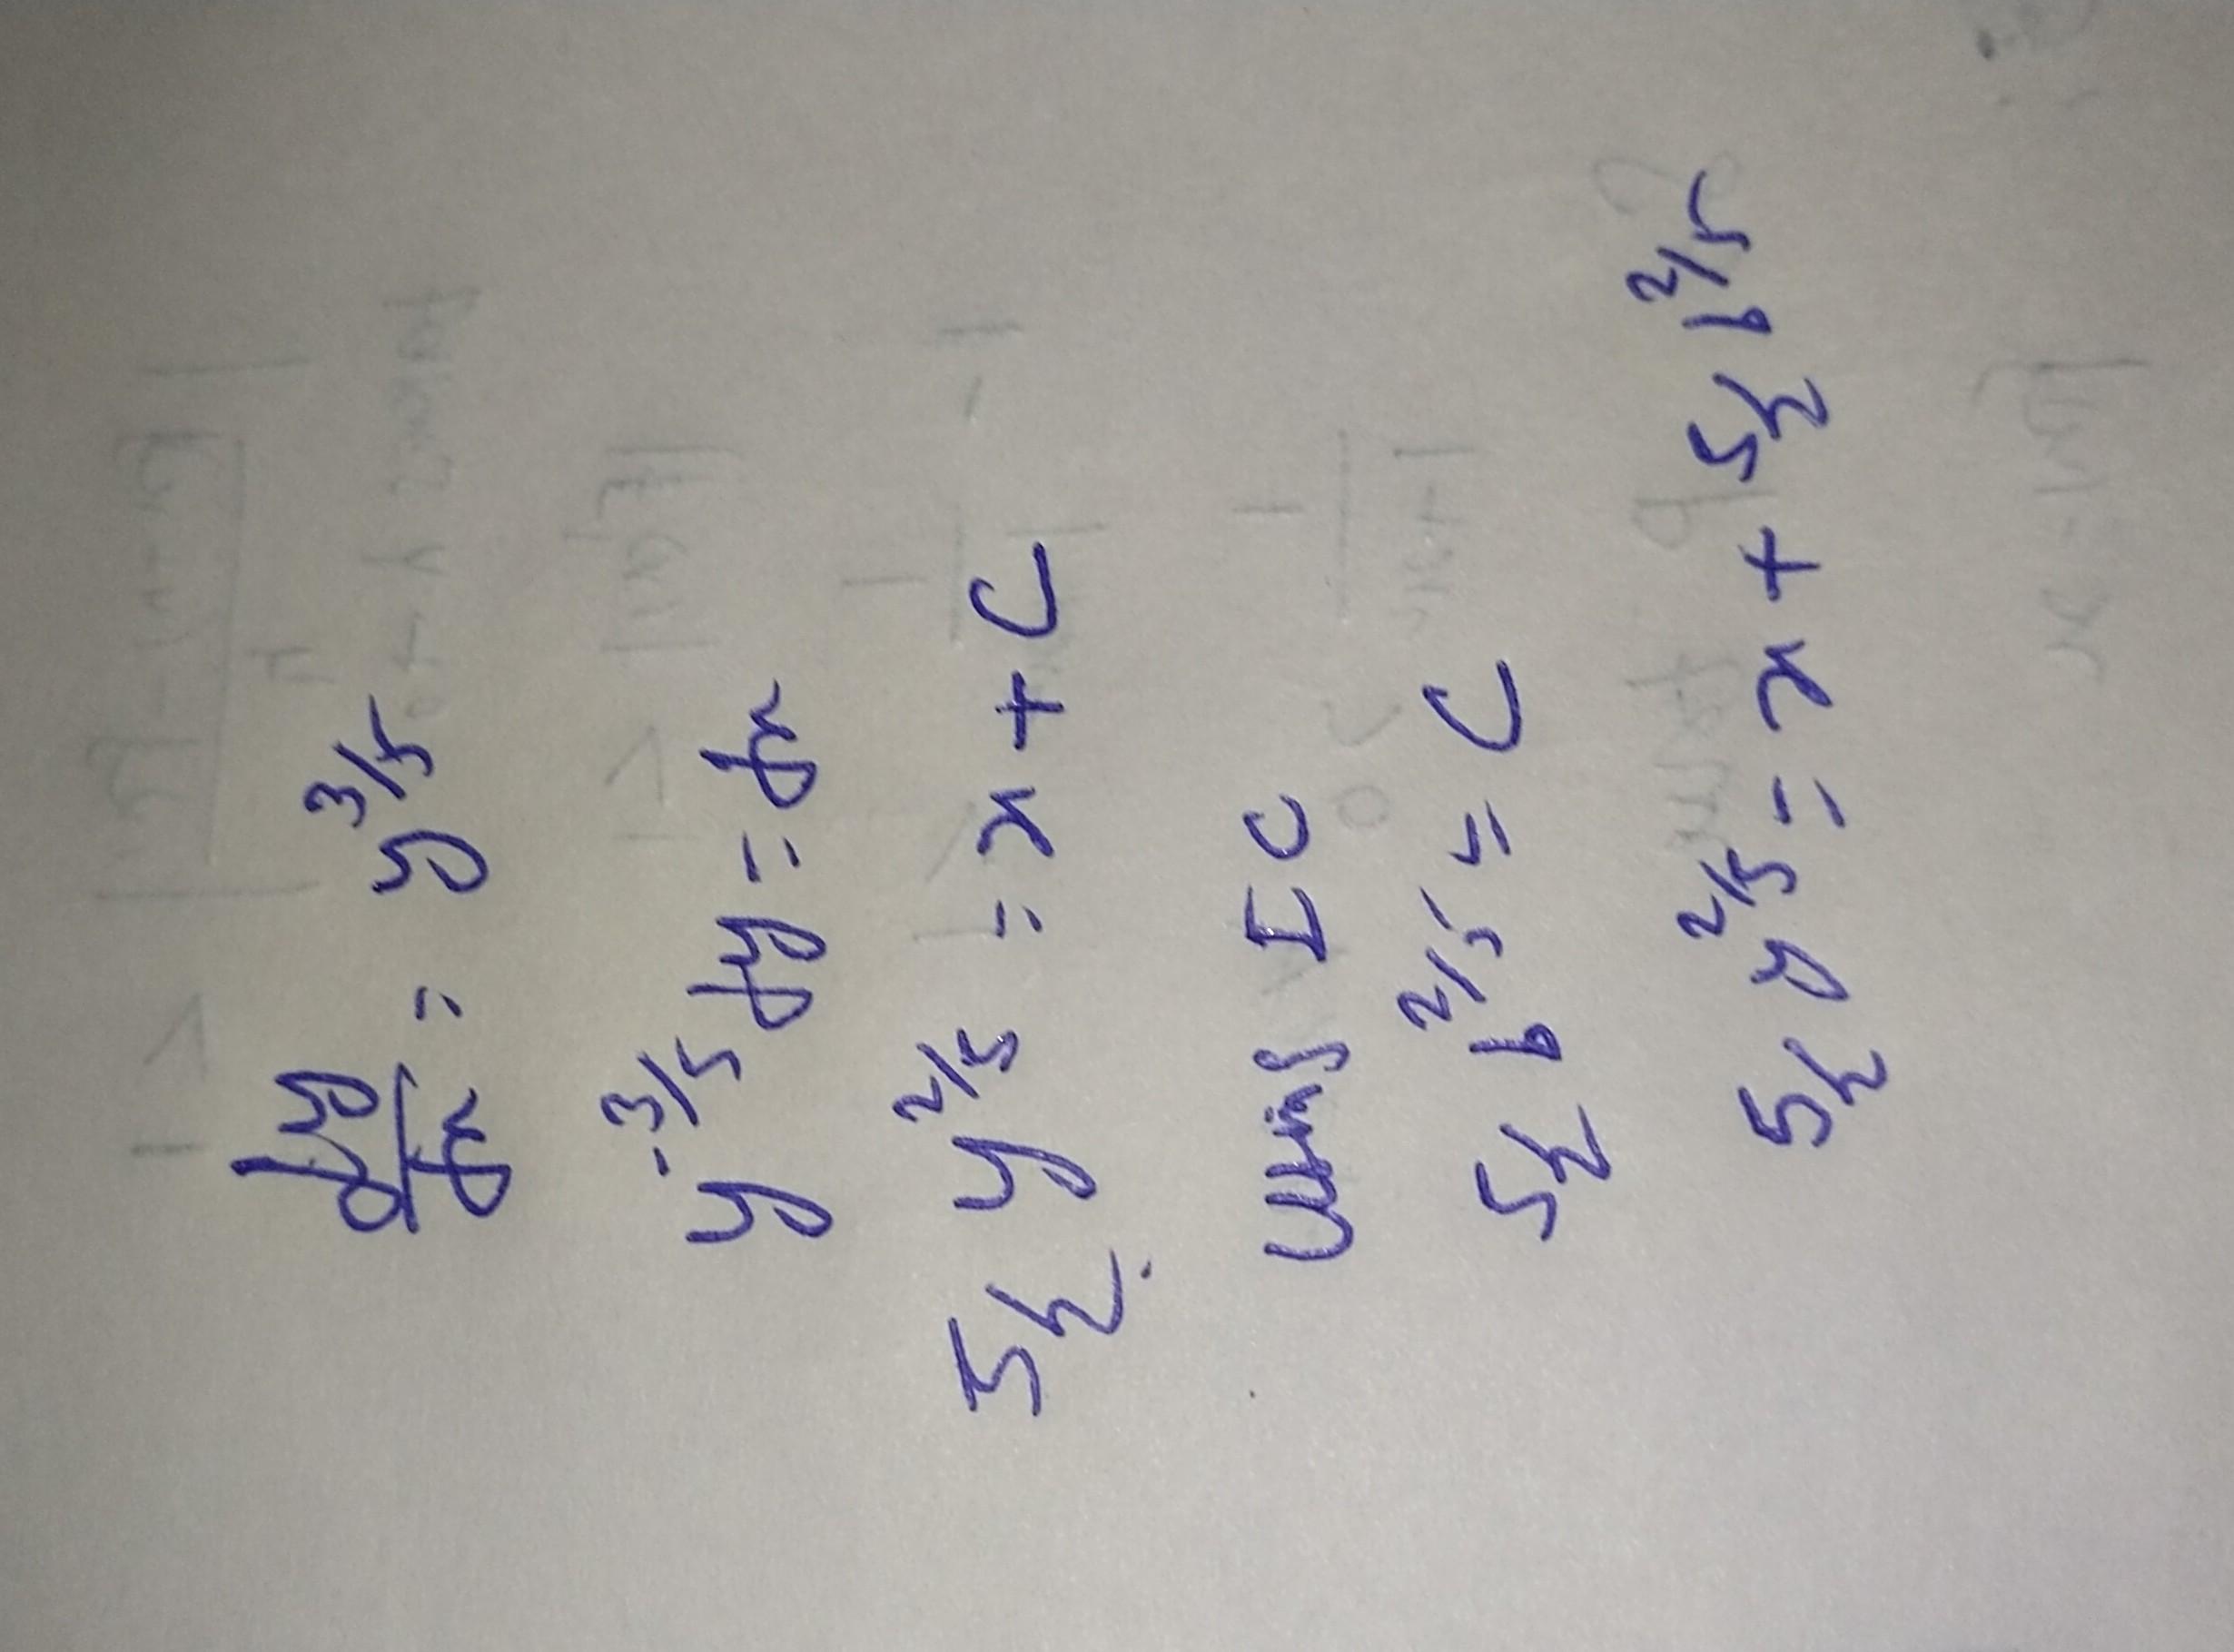 dy/dx = y^3/5
y^-3/5 dy = dx
5/2 y^2/5 = x + C
Using IC
5/2 b^2/5 = C
5/2 y^2/5 = x + 5/2 b^2/5